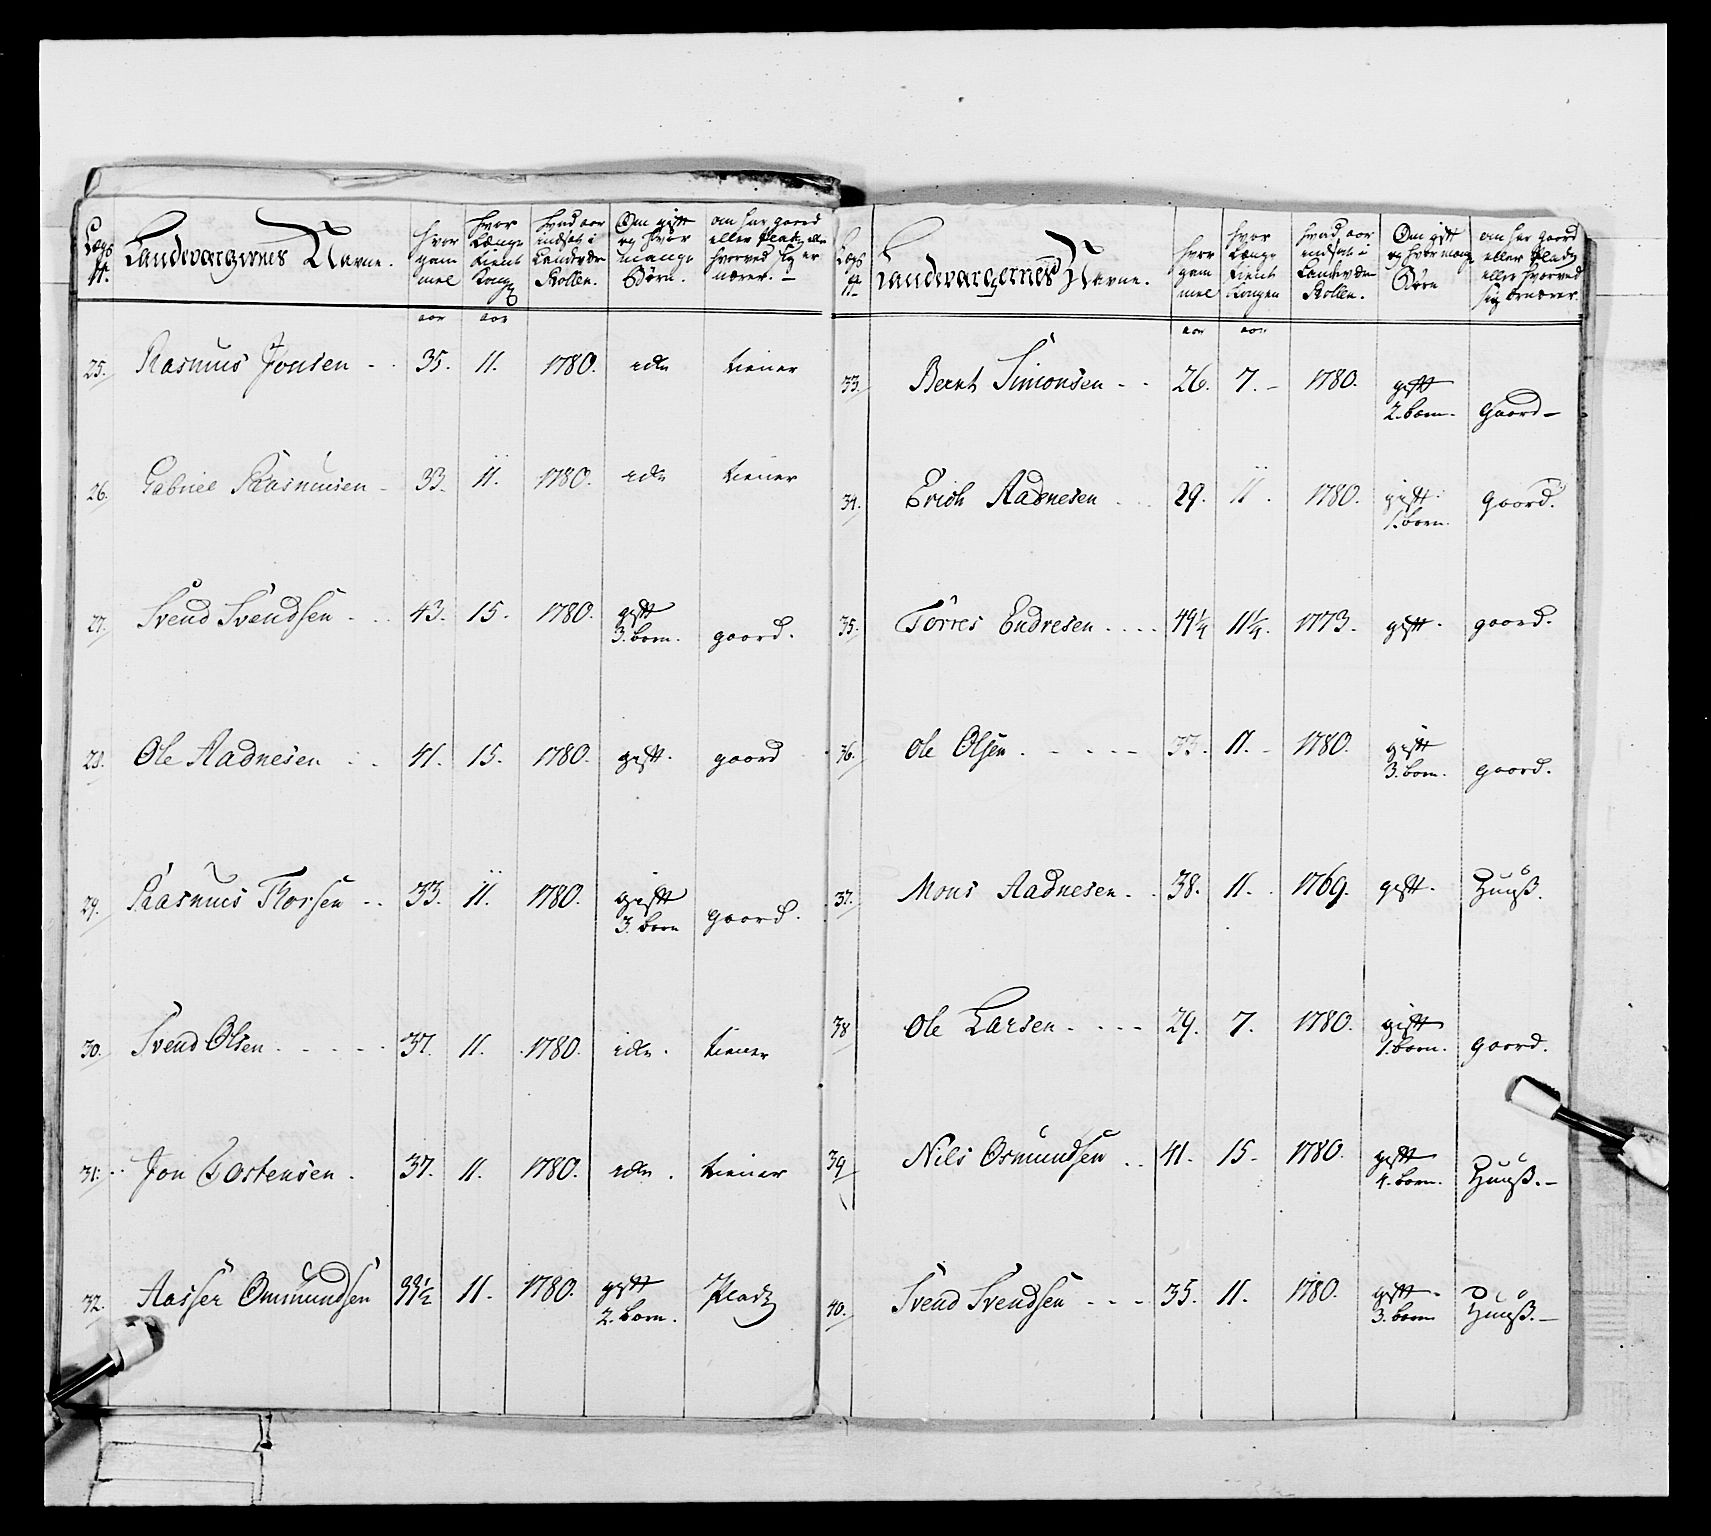 Lægs N. Landeværgernes Navne. hvor gammel hvor Længe tient Kong hvad aar indsat i Landevær Rollen. Om gift og hvor mange Børn. om har gaard eller Pladz eller hvorved sig er nærer. –
aar aar
25. Rasmus Jonsen - - 35. 11. 1780. icke tiener
26. Gabriel Rasmusen - 33. 11. 1780. icke tiener
27. Svend Svendsen - - 43. 15. 1780. gift 3. born. gaard.
28. Ole Aadnesen - - 41. 15. 1780. gift. gaard
29. Rasmus Thorsen - - 33. 11. 1780. gift 3. born gaard.
30. Svend Olsen - - - - - 37. 11. 1780. icke. tiener
31. Jon Tostensen. 37. 11. 1780. icke. tiener
32. Aasser Ommundsen 39½ 11. 1780. gift 2. born. Pladz
Lægs N. Landeværgernes Navne. hvor gammel hvor Længe tient Kongen hvad aar indsat i Landevær Rollen. Om gift og hvor mange Børn om har gaard eller Pladz eller hvorved sig ernærer.
aar aar
33. Bernt Simonsen - - 26. 7. – 1780. gift 2. born. gaard –
34. Erich Aadnesen - - 29. 11. 1780. gift. 1. born. gaard.
35. Törres Endresen - - - - 49¼ 11¼. 1773. gift. gaard.
36. Ole Olsen. - - - - - 33. 11. – 1780. gift 3. born. gaard.
37. Mons Aadnesen - - 38. 11. 1769. gift. Huuß.
38 Ole Larsen - - - - 29. 7. 1780. gift 1. born. gaard.
39 Nils Osmundsen - - 41. 15. 1780. gift 4. born. Huuß. –
40. Svend Svendsen - - - 35. 11. 1780. gift 3. born Huuß. –